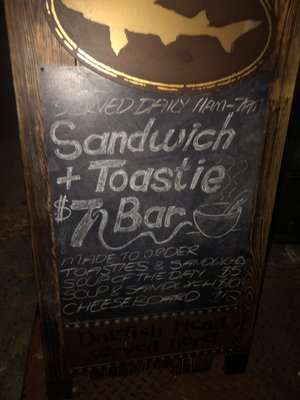 SERVED DAILY 11AM-7PM
Sandwich
+ Toastie
$7 Bar
MADE TO ORDER
TOASTIES & SANDWICHES
SOUP OF THE DAY $5
SOUP & SANDWICH $10
CHEESEBOARD $15
Dogfish Head
served here!